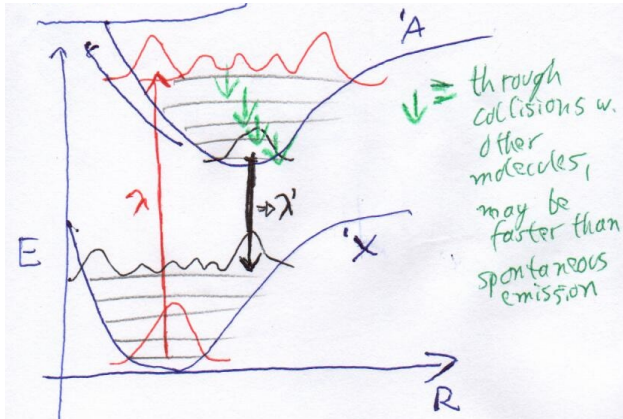 'A
↓ = through
collisions w.
other
molecules,
may be
faster than
spontaneous
emission
λ
⇒ λ'
E
'X
R